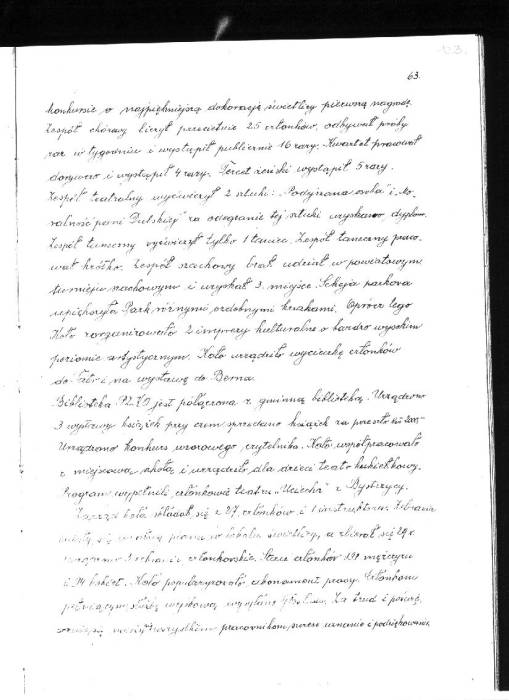 63.
konkursie o najpiękniejszą dekorację świetlicy pierwszą nagrodę.
Zespół chórowy liczył przeciętnie 25 członków, odbywał próby
raz w tygodniu i wystąpił publicznie 16 razy. Kwartet pracował
dorywczo i wystąpił 4 razy. Tercet żeński wystąpił 5 razy.
Zespół teatralny wyćwiczył 2 sztuki: "Podejrzana osoba" i "Mo-
ralność pani Dulskiej" za odegranie tej sztuki uzyskano dyplom.
Zespół taneczny wyćwiczył tylko 1 taniec. Zespół taneczny praco-
wał krótko. Zespół szachowy brał udział w powiatowym
turnieju szachowym i uzyskał 3. miejsce. Sekcja parkowa
upiększyła Park różnymi ozdobnymi krzakami. Oprócz tego
Koło zorganizowało 2 imprezy kulturalne o bardzo wysokim
poziomie artystycznym. Koło urządziło wycieczkę członków
do Tatr i na wystawę do Berna.
Biblioteka PZKO jest połączona z gminną biblioteką. Urządzono
3 wystawy książek przy czym sprzedano książek za przeszło Kčs
Urządzono konkurs wzorowego czytelnika. Koło współpracowało
z miejscową szkołą i urządziło dla dzieci teatr kukiełkowy.
Program wypełnili członkowie teatru "Uciecha" z Bystrzycy.
Zarząd koła składał się z 27 członków i 1 instruktora. Zebrania
w lokalu świetlicy, a zebrał się 24 x
zebrania członkowskie. Stan członków 191 mężczyzn
i 94 kobiet. Koło popularyzowało abonament prasy. Członkom
pełniącym służbę wojskową wysłano Za trud i poświę-
wszystkim pracownikom, szczere uznanie i podziękowanie.